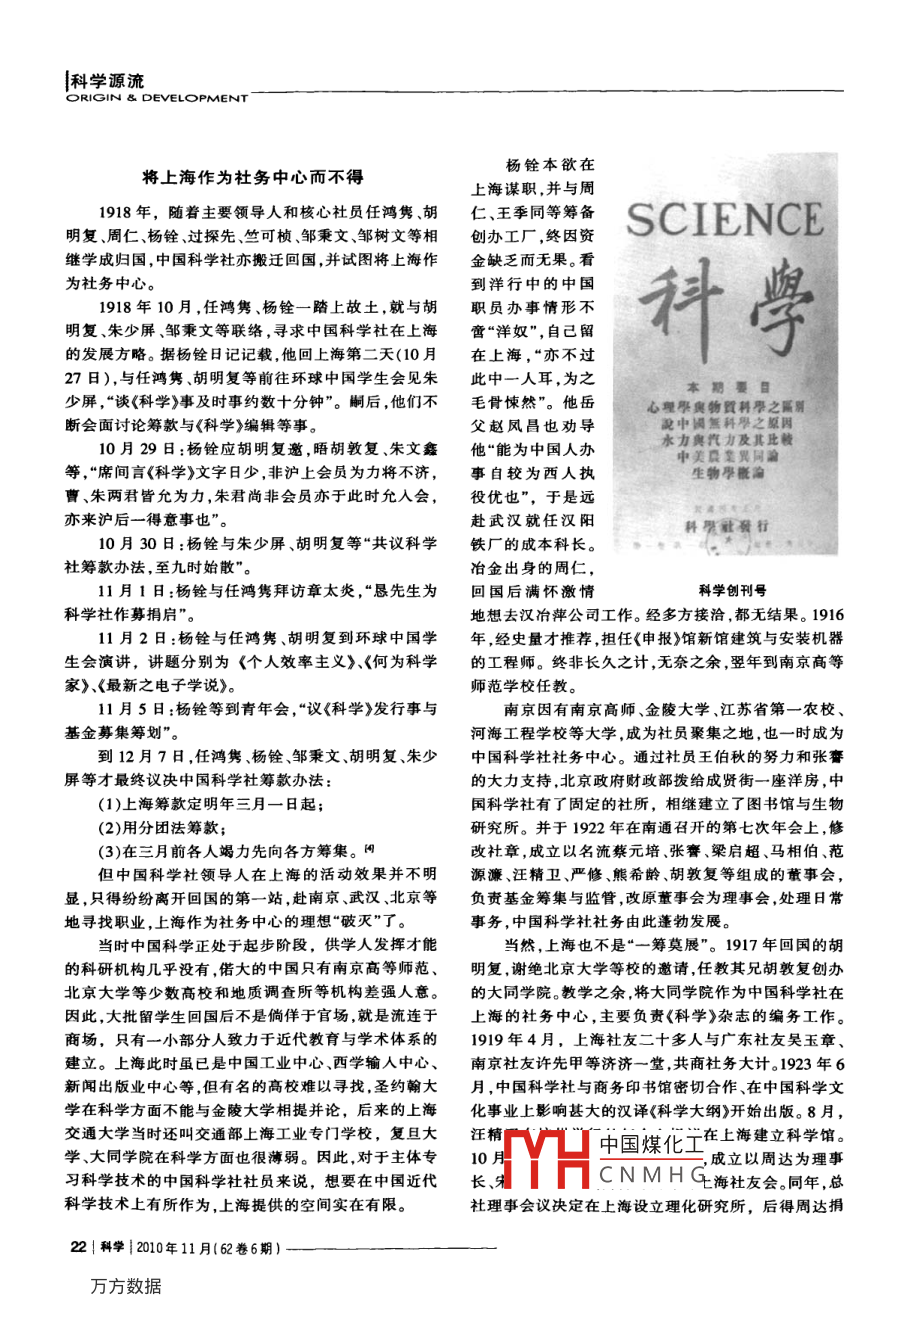 科学源流
ORIGIN & DEVELOPMENT
将上海作为社务中心而不得
1918 年，随着主要领导人和核心社员任鸿隽、胡
明复、周仁、杨铨、过探先、竺可桢、邹秉文、邹树文等相
继学成归国,中国科学社亦搬迁回国,并试图将上海作
为社务中心。
1918 年 10 月,任鸿隽、杨铨一踏上故土,就与胡
明复、朱少屏、邹秉文等联络,寻求中国科学社在上海
的发展方略。据杨铨日记记载,他回上海第二天(10 月
27 日),与任鸿隽、胡明复等前往环球中国学生会见朱
少屏,“谈《科学》事及时事约数十分钟”。嗣后,他们不
断会面讨论筹款与《科学》编辑等事。
10 月 29 日:杨铨应胡明复邀,晤胡敦复、朱文鑫
等,“席间言《科学》文字日少,非沪上会员为力将不济,
曹、朱两君皆允为力,朱君尚非会员亦于此时允入会,
亦来沪后一得意事也”。
10 月 30 日:杨铨与朱少屏、胡明复等“共议科学
社筹款办法,至九时始散”。
11 月 1 日:杨铨与任鸿隽拜访章太炎,“恳先生为
科学社作募捐启”。
11 月 2 日:杨铨与任鸿隽、胡明复到环球中国学
生会演讲，讲题分别为《个人效率主义》、《何为科学
家》、《最新之电子学说》。
11 月 5 日:杨铨等到青年会,“议《科学》发行事与
基金募集筹划”。
到 12 月 7 日,任鸿隽、杨铨、邹秉文、胡明复、朱少
屏等才最终议决中国科学社筹款办法:
(1)上海筹款定明年三月一日起;
(2)用分团法筹款;
(3)在三月前各人竭力先向各方筹集。[4]
但中国科学社领导人在上海的活动效果并不明
显,只得纷纷离开回国的第一站,赴南京、武汉、北京等
地寻找职业,上海作为社务中心的理想“破灭”了。
当时中国科学正处于起步阶段，供学人发挥才能
的科研机构几乎没有,偌大的中国只有南京高等师范、
北京大学等少数高校和地质调查所等机构差强人意。
因此,大批留学生回国后不是倘佯于官场,就是流连于
商场，只有一小部分人致力于近代教育与学术体系的
建立。上海此时虽已是中国工业中心、西学输入中心、
新闻出版业中心等,但有名的高校难以寻找,圣约翰大
学在科学方面不能与金陵大学相提并论，后来的上海
交通大学当时还叫交通部上海工业专门学校，复旦大
学、大同学院在科学方面也很薄弱。因此,对于主体专
习科学技术的中国科学社社员来说，想要在中国近代
科学技术上有所作为,上海提供的空间实在有限。
杨铨本欲在
上海谋职,并与周
仁、王季同等筹备
创办工厂,终因资
金缺乏而无果。看
到洋行中的中国
职员办事情形不
啻“洋奴”,自己留
在上海,“亦不过
此中一人耳,为之
毛骨悚然”。他岳
父赵凤昌也劝导
他“能为中国人办
事自较为西人执
役优也”，于是远
赴武汉就任汉阳
铁厂的成本科长。
冶金出身的周仁,
回国后满怀激情
SCIENCE
科學
本期要目
心理學與物質科學之區別
說中國無科學之原因
水力與汽力及其比較
中美農業異同論
生物學概論
科學社發行
科学创刊号
地想去汉冶萍公司工作。经多方接洽,都无结果。1916
年,经史量才推荐,担任《申报》馆新馆建筑与安装机器
的工程师。终非长久之计,无奈之余,翌年到南京高等
师范学校任教。
南京因有南京高师、金陵大学、江苏省第一农校、
河海工程学校等大学,成为社员聚集之地,也一时成为
中国科学社社务中心。通过社员王伯秋的努力和张謇
的大力支持,北京政府财政部拨给成贤街一座洋房,中
国科学社有了固定的社所，相继建立了图书馆与生物
研究所。并于 1922 年在南通召开的第七次年会上,修
改社章,成立以名流蔡元培、张謇、梁启超、马相伯、范
源濂、汪精卫、严修、熊希龄、胡敦复等组成的董事会,
负责基金筹集与监管,改原董事会为理事会,处理日常
事务,中国科学社社务由此蓬勃发展。
当然,上海也不是“一筹莫展”。1917 年回国的胡
明复,谢绝北京大学等校的邀请,任教其兄胡敦复创办
的大同学院。教学之余,将大同学院作为中国科学社在
上海的社务中心,主要负责《科学》杂志的编务工作。
1919 年 4 月，上海社友二十多人与广东社友吴玉章、
南京社友许先甲等济济一堂,共商社务大计。1923 年 6
月,中国科学社与商务印书馆密切合作、在中国科学文
化事业上影响甚大的汉译《科学大纲》开始出版。8 月,
汪精 在上海建立科学馆。
10 月 ,成立以周达为理事
长、 上海社友会。同年,总
社理事会议决定在上海设立理化研究所，后得周达捐
MH 中国煤化工
CNMHG
22 | 科学 | 2010年11月(62卷6期)
万方数据